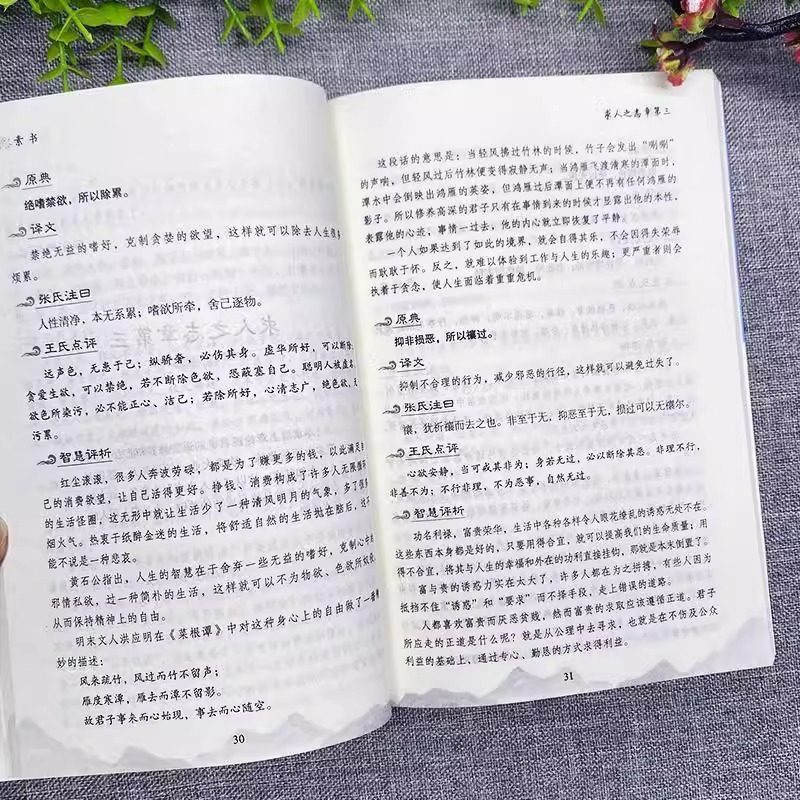 素书
原典
绝嗜禁欲，所以除累。
译文
禁绝无益的嗜好，克制贪婪的欲望，这样就可以除去人生很多
烦累。
张氏注曰
人性清净，本无系累；嗜欲所牵，舍己逐物。
王氏点评
远声色，无患于己；纵骄奢，必伤其身。虚华所好，可以断除；
贪爱生欲，可以禁绝，若不断除色欲，恐蔽塞自己。聪明人被虚名
欲色所染污，必不能正心、洁己；若除所好，心清志广，绝色欲，无
污累。
智慧评析
红尘滚滚，很多人奔波劳碌，都是为了赚更多的钱，以此满足自
己的消费欲望，让自己活得更好。挣钱、消费构成了许多人无限循环
的生活怪圈，这无形中就让生活少了一种清风明月的气象，多了很多
烟火气。热衷于纸醉金迷的生活，将舒适自然的生活抛在脑后，这不
能不说是一种悲哀。
黄石公指出，人生的智慧在于舍弃一些无益的嗜好，克制心中的
邪情私欲，过一种简朴的生活，这样就可以不为物欲、色欲所奴役，
从而保持精神上的自由。
明末文人洪应明在《菜根谭》中对这种身心上的自由做了一番精
妙的描述：
风来疏竹，风过而竹不留声；
雁度寒潭，雁去而潭不留影。
故君子事来而心始现，事去而心随空。
30
求人之志章第三
这段话的意思是：当轻风拂过竹林的时候，竹子会发出“唰唰”
的声响，但轻风过后竹林便变得寂静无声；当鸿雁飞渡清寒的潭面时，
潭水中会倒映出鸿雁的英姿，但鸿雁过后潭面上便不再有任何鸿雁的
影子。所以修养高深的君子只有在事情到来的时候才显露出他的本性，
表露他的心迹，事情一过去，他的内心就立即恢复了平静。
一个人如果达到了如此的境界，就会自得其乐，不会因得失荣辱
而耿耿于怀。反之，就难以体验到工作与人生的乐趣；更严重者则会
执着于贪念，使人生面临着重重危机。
原典
抑非损恶，所以禳过。
译文
抑制不合理的行为，减少邪恶的行径，这样就可以避免过失了。
张氏注曰
禳，犹祈禳而去之也。非至于无，抑恶至于无，损过可以无禳尔。
王氏点评
心欲安静，当可戒其非为；身若无过，必以断除其恶。非理不行，
非善不为；不行非理，不为恶事，自然无过。
智慧评析
功名利禄，富贵荣华，生活中各种各样令人眼花缭乱的诱惑无处不在。
这些东西本身都是好的，只要用得合宜，就可以提高我们的生命质量；用
得不合宜，将其与人生的幸福和外在的功利直接挂钩，那就是本末倒置了。
富与贵的诱惑力实在太大了，许多人都在为之拼搏，有些人因为
抵挡不住“诱惑”和“要求”而不择手段，走上错误的道路。
人都喜欢富贵而厌恶贫贱，然而富贵的求取应该遵循正道。君子
所应走的正道是什么呢？就是从公理中去寻求，也就是在不伤及公众
利益的基础上、通过专心、勤恳的方式求得利益。
31